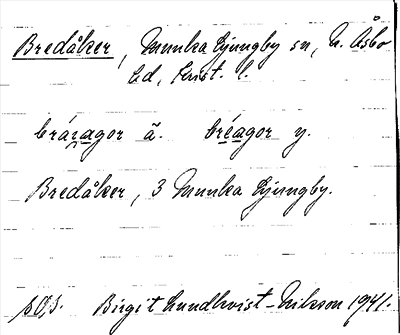 Bredåker, Munka Ljungby sn, N. Åsbo
hd, Krist. l.
bráragor ä. bréagor y.
Bredåker, 3 Munka Ljungby.
Birgit Lundkvist-Nilsson 1941.